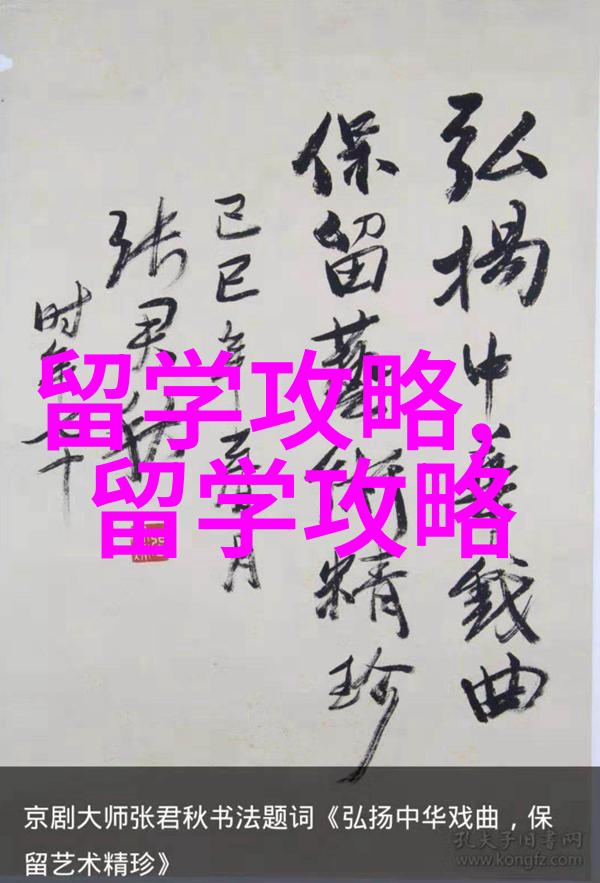 弘揚中華戲曲
保留藝術精珍
己巳年五月
张君秋
时年七十
留学攻略,
留学攻略
京剧大师张君秋书法题词《弘扬中华戏曲，保
留艺术精珍》
孔夫子旧书网
www.kongfz.com